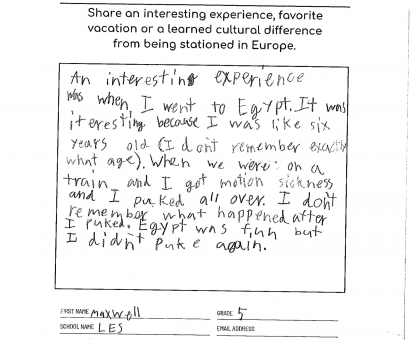 Share an interesting experience, favorite
vacation or a learned cultural difference
from being stationed in Europe.
An interesting experience
was when I went to Egypt. It was
iteresting because I was like six
years old (I dont remember exactly
what age). When we were on a
train and I got motion sickness
and I puked all over. I don't
remember what happened after
I puked. Egypt was fun but
I didn't puke again.
FIRST NAME Maxwell GRADE 5
SCHOOL NAME LES EMAIL ADDRESS